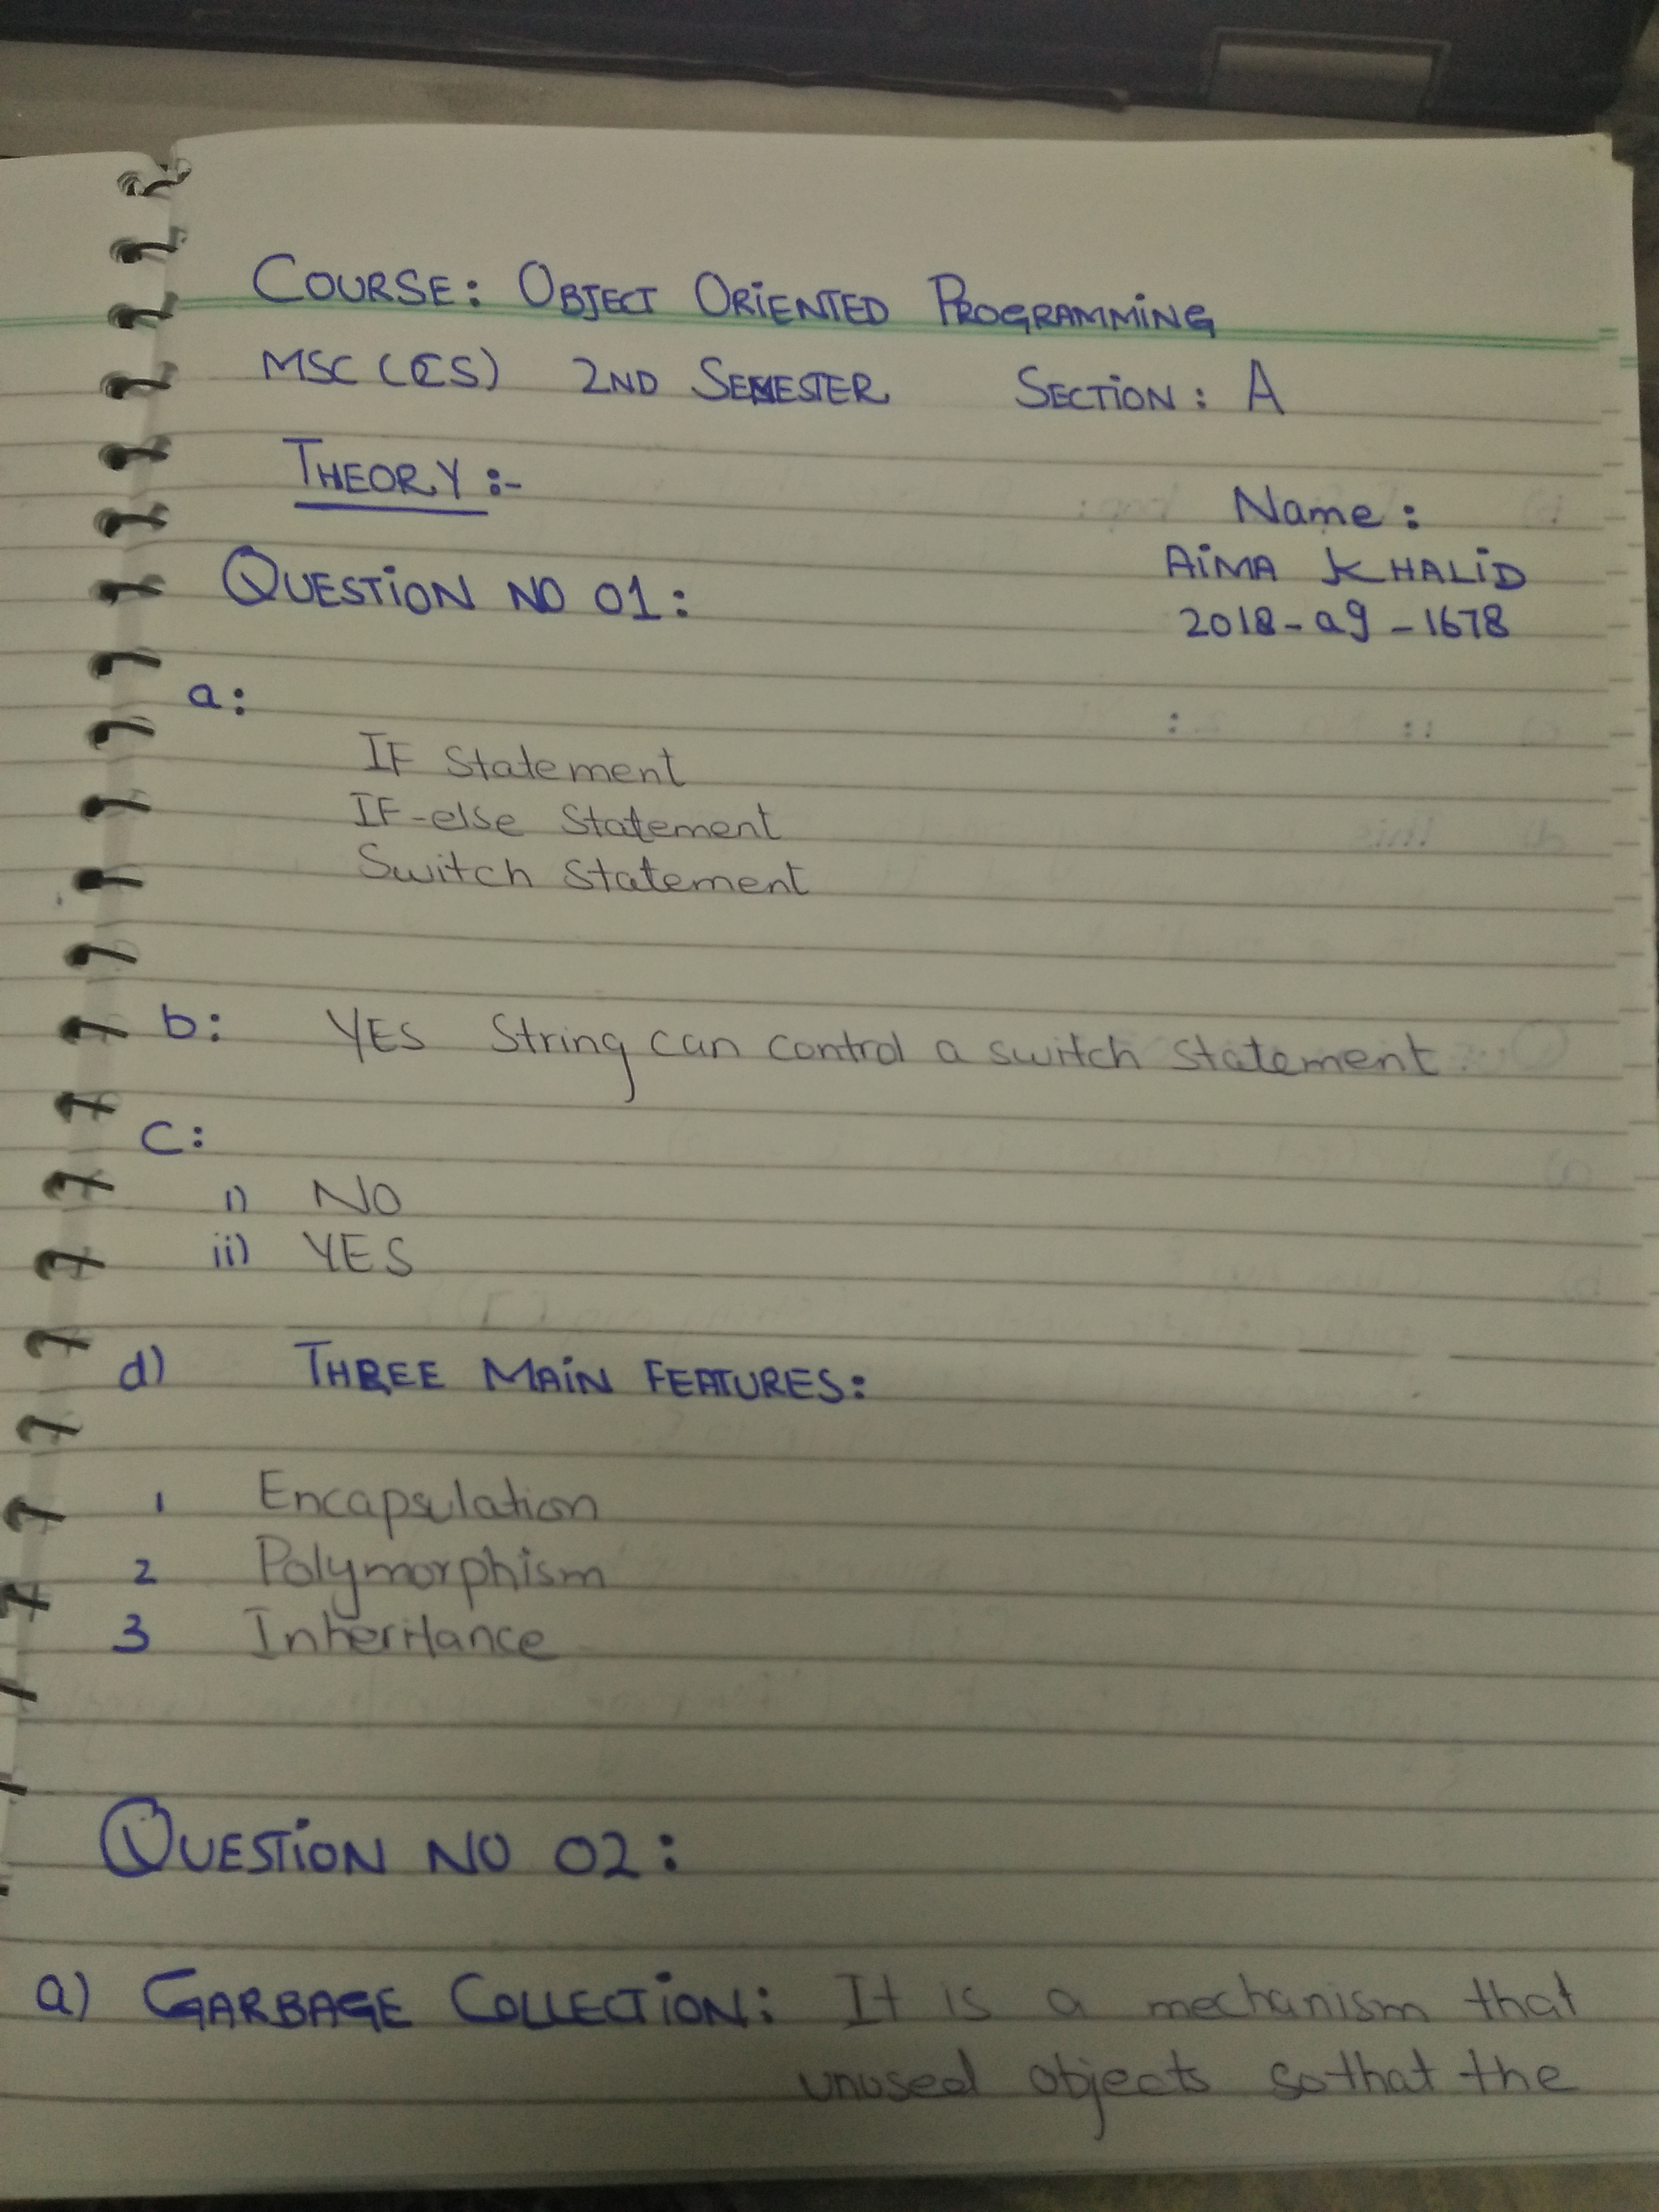 COURSE: OBJECT ORIENTED PROGRAMMING
MSC (CS) 2ND SEMESTER SECTION: A
THEORY :-
Name :
AIMA KHALID
2018-ag-1678
QUESTION NO 01:
a:
IF Statement
IF-else Statement
Switch Statement
b: YES String can control a switch statement.
C:
i) NO
ii) YES
d) THREE MAIN FEATURES:
1 Encapsulation
2 Polymorphism
3 Inheritance
QUESTION NO 02:
a) GARBAGE COLLECTION: It is a mechanism that
unused objects so that the